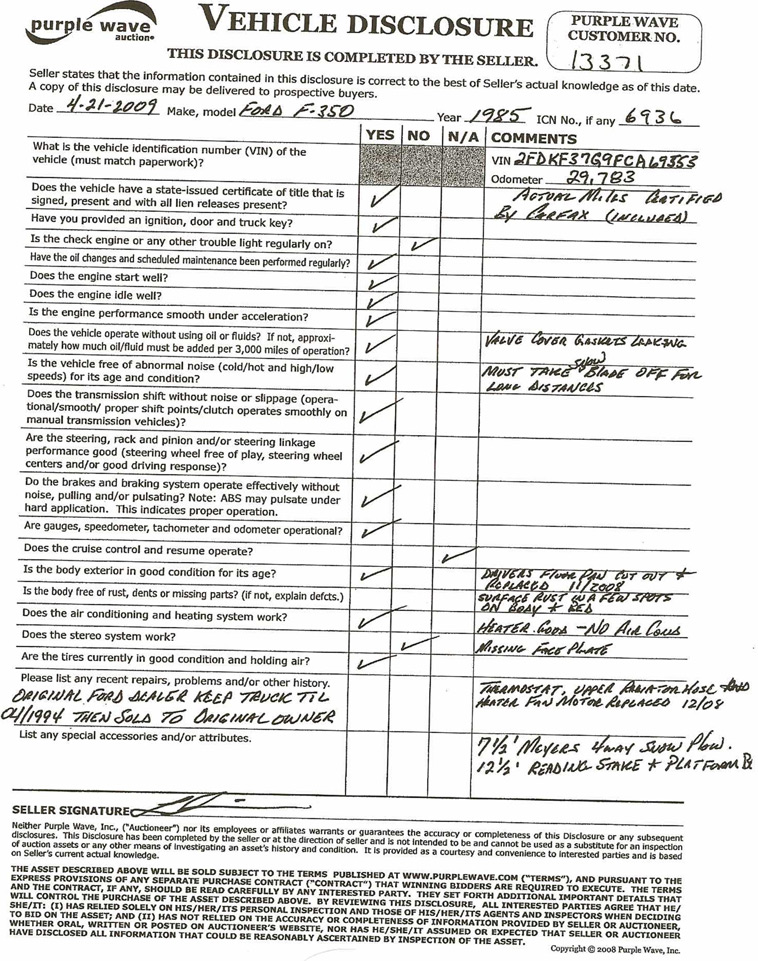 purple wave
auction
VEHICLE DISCLOSURE
THIS DISCLOSURE IS COMPLETED BY THE SELLER.
PURPLE WAVE
CUSTOMER NO.
13371
Seller states that the information contained in this disclosure is correct to the best of Seller's actual knowledge as of this date.
A copy of this disclosure may be delivered to prospective buyers.
Date 4-21-2009 Make, model FORD F-350 Year 1985 ICN No., if any 6936
YES NO N/A COMMENTS
What is the vehicle identification number (VIN) of the
vehicle (must match paperwork)?
VIN 2FDKF37G9FCA69353
Odometer 29,783
Does the vehicle have a state-issued certificate of title that is
signed, present and with all lien releases present?
ACTUAL MILES CERTIFIED
BY CARFAX (INCLUDED)
Have you provided an ignition, door and truck key?
Is the check engine or any other trouble light regularly on?
Have the oil changes and scheduled maintenance been performed regularly?
Does the engine start well?
Does the engine idle well?
Is the engine performance smooth under acceleration?
Does the vehicle operate without using oil or fluids? If not, approxi-
mately how much oil/fluid must be added per 3,000 miles of operation?
VALVE COVER GASKETS LEAKING
Is the vehicle free of abnormal noise (cold/hot and high/low
speeds) for its age and condition?
MUST TAKE SNOW BLADE OFF FOR
LONG DISTANCES
Does the transmission shift without noise or slippage (opera-
tional/smooth/ proper shift points/clutch operates smoothly on
manual transmission vehicles)?
Are the steering, rack and pinion and/or steering linkage
performance good (steering wheel free of play, steering wheel
centers and/or good driving response)?
Do the brakes and braking system operate effectively without
noise, pulling and/or pulsating? Note: ABS may pulsate under
hard application. This indicates proper operation.
Are gauges, speedometer, tachometer and odometer operational?
Does the cruise control and resume operate?
Is the body exterior in good condition for its age?
DRIVERS FLOOR PAN CUT OUT &
REPLACED 11/2008
Is the body free of rust, dents or missing parts? (if not, explain defcts.)
SURFACE RUST IN A FEW SPOTS
ON BODY & BED
Does the air conditioning and heating system work?
HEATER GOOD - NO AIR COND
Does the stereo system work?
MISSING FACE PLATE
Are the tires currently in good condition and holding air?
Please list any recent repairs, problems and/or other history.
ORIGINAL FORD DEALER KEEP TRUCK TIL
01/1994 THEN SOLD TO ORIGINAL OWNER
THERMOSTAT, UPPER RADIATOR HOSE AND
HEATER FAN MOTOR REPLACED 12/08
List any special accessories and/or attributes.
7 1/2' MEYERS 4WAY SNOW PLOW.
12 1/2' READING STAKE & PLATFORM
SELLER SIGNATURE
Neither Purple Wave, Inc., ("Auctioneer") nor its employees or affiliates warrants or guarantees the accuracy or completeness of this Disclosure or any subsequent
disclosures. This Disclosure has been completed by the seller or at the direction of seller and is not intended to be and cannot be used as a substitute for an inspection
of auction assets or any other means of investigating an asset's history and condition. It is provided as a courtesy and convenience to interested parties and is based
on Seller's current actual knowledge.
THE ASSET DESCRIBED ABOVE WILL BE SOLD SUBJECT TO THE TERMS PUBLISHED AT WWW.PURPLEWAVE.COM ("TERMS"), AND PURSUANT TO THE
EXPRESS PROVISIONS OF ANY SEPARATE PURCHASE CONTRACT ("CONTRACT") THAT WINNING BIDDERS ARE REQUIRED TO EXECUTE. THE TERMS
AND THE CONTRACT, IF ANY, SHOULD BE READ CAREFULLY BY ANY INTERESTED PARTY. THEY SET FORTH ADDITIONAL IMPORTANT DETAILS THAT
WILL CONTROL THE PURCHASE OF THE ASSET DESCRIBED ABOVE. BY REVIEWING THIS DISCLOSURE, ALL INTERESTED PARTIES AGREE THAT HE/
SHE/IT: (I) HAS RELIED SOLELY ON HIS/HER/ITS PERSONAL INSPECTION AND THOSE OF HIS/HER/ITS AGENTS AND INSPECTORS WHEN DECIDING
TO BID ON THE ASSET; AND (II) HAS NOT RELIED ON THE ACCURACY OR COMPLETENESS OF INFORMATION PROVIDED BY SELLER OR AUCTIONEER,
WHETHER ORAL, WRITTEN OR POSTED ON AUCTIONEER'S WEBSITE, NOR HAS HE/SHE/IT ASSUMED OR EXPECTED THAT SELLER OR AUCTIONEER
HAVE DISCLOSED ALL INFORMATION THAT COULD BE REASONABLY ASCERTAINED BY INSPECTION OF THE ASSET.
Copyright © 2008 Purple Wave, Inc.